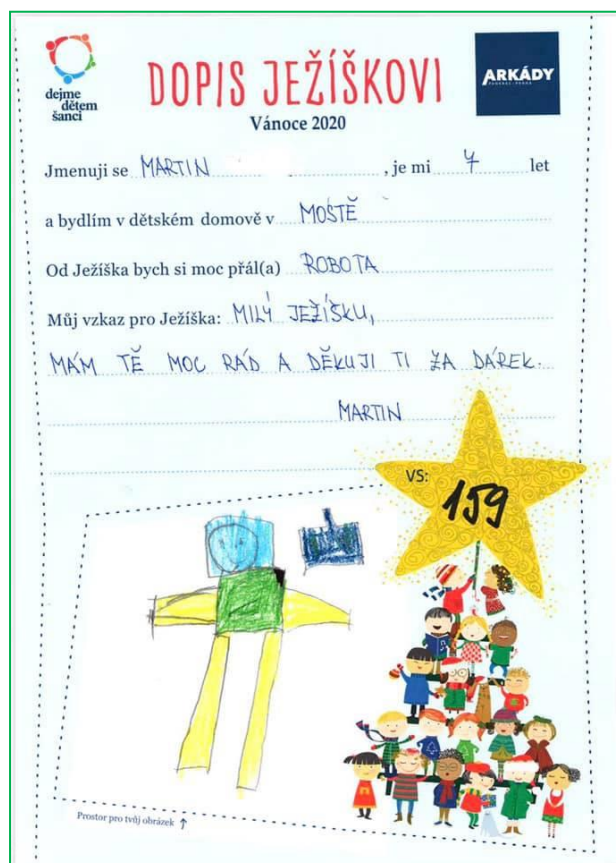 dejme
dětem
šanci
DOPIS JEŽÍŠKOVI
ARKÁDY
PANKRÁC · PRAHA
Vánoce 2020
Jmenuji se MARTIN , je mi 7 let
a bydlím v dětském domově v MOSTĚ
Od Ježíška bych si moc přál(a) ROBOTA
Můj vzkaz pro Ježíška: MILÝ JEŽÍŠKU,
MÁM TĚ MOC RÁD A DĚKUJI TI ZA DÁREK.
MARTIN
VS:
159
Prostor pro tvůj obrázek ↑